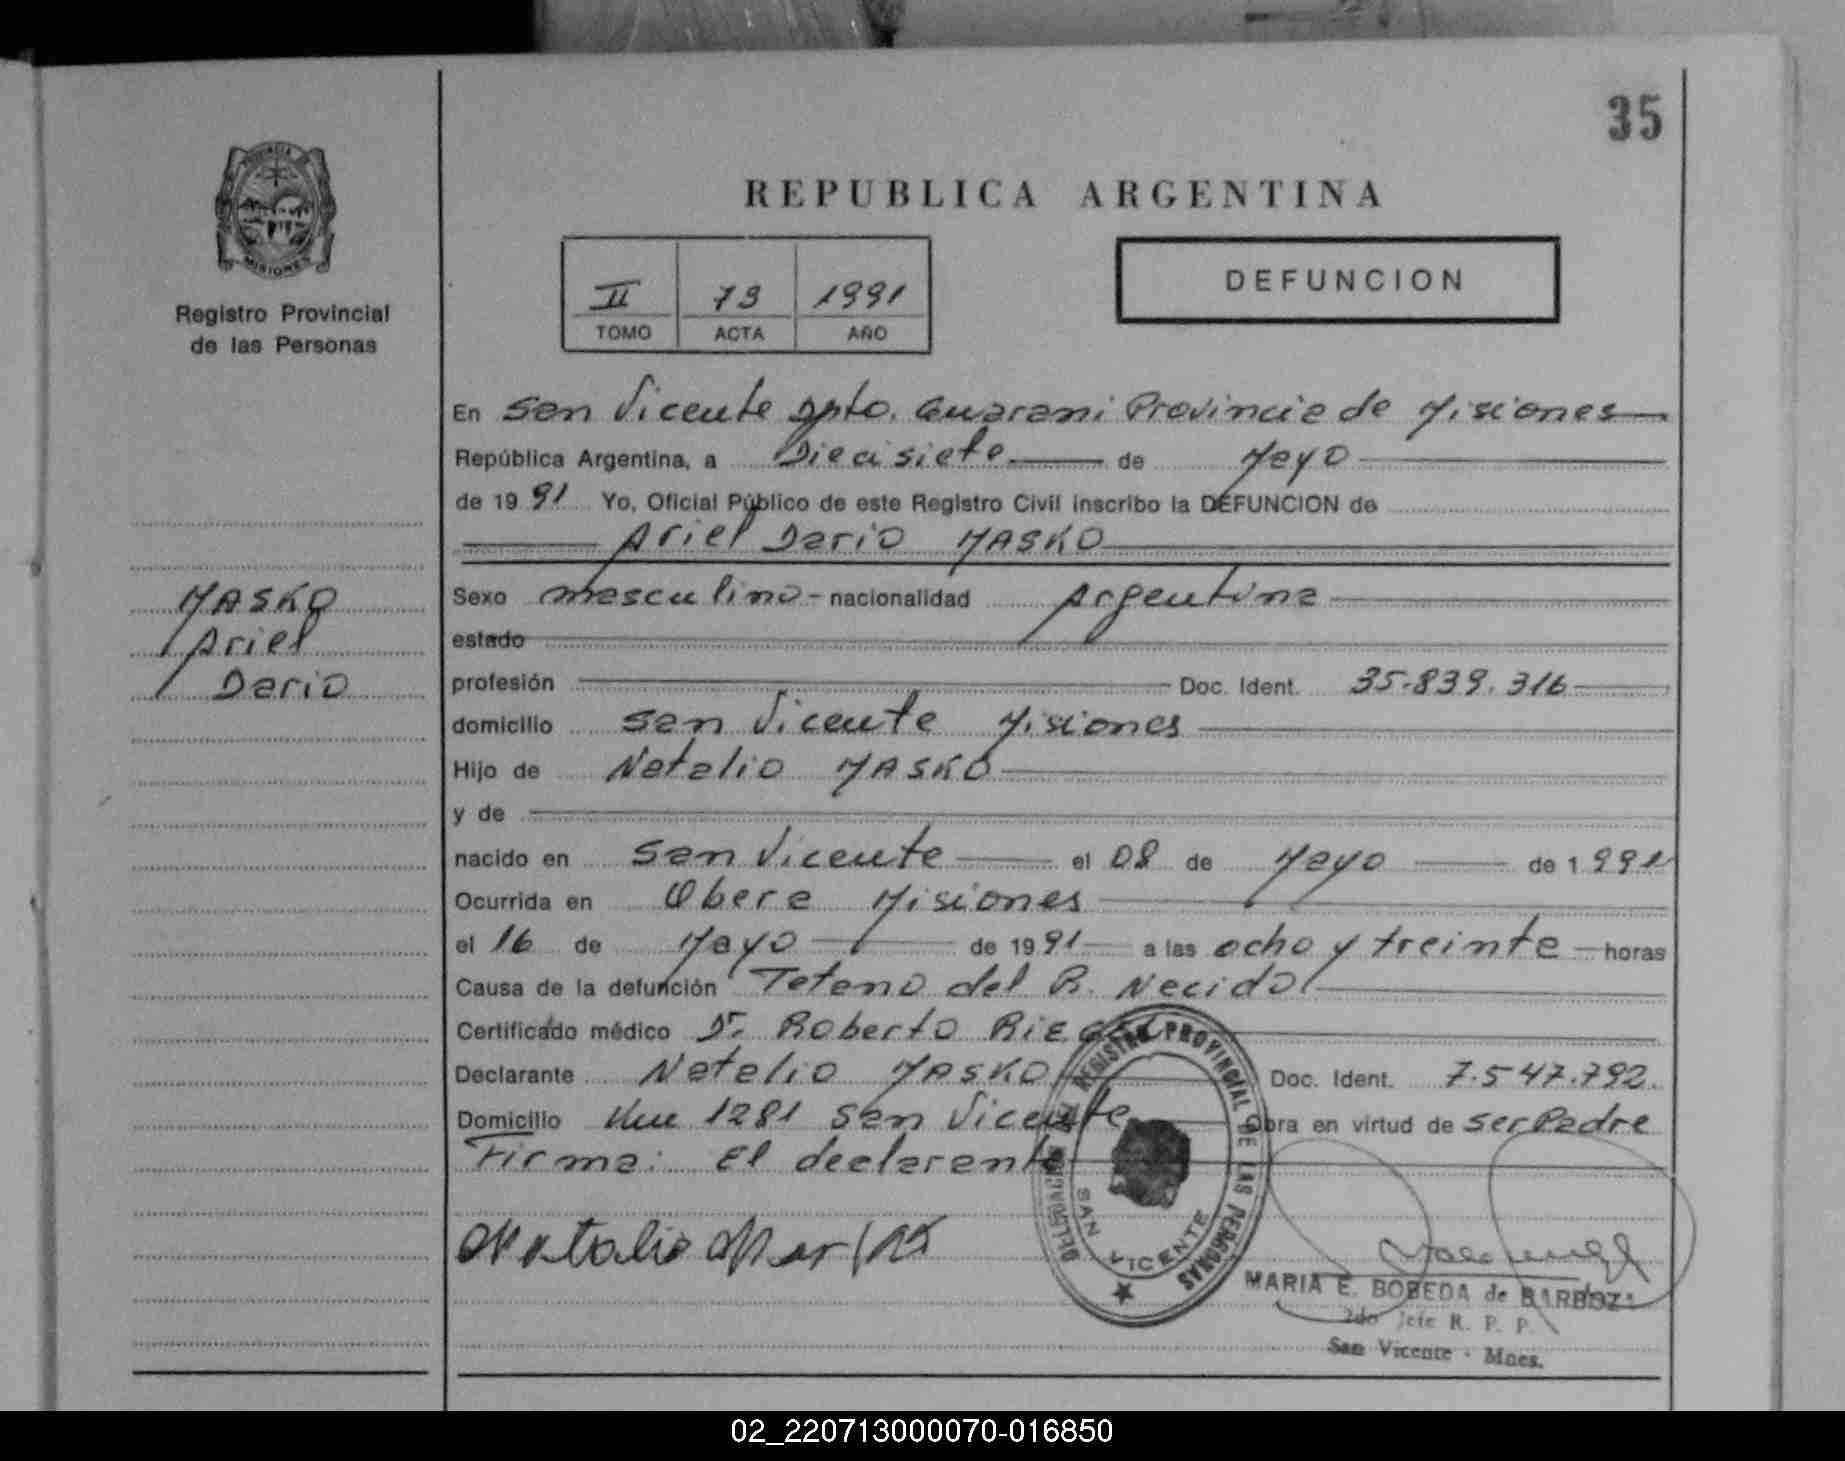 35
PROVINCIA DE
MISIONES
Registro Provincial
de las Personas
REPUBLICA ARGENTINA
II 79 1991
TOMO ACTA AÑO
DEFUNCION
En San Vicente Dpto. Guarani Provincia de Misiones
República Argentina, a Diecisiete de Mayo
de 19 91 Yo, Oficial Público de este Registro Civil inscribo la DEFUNCION de
Ariel Dario MASKO
MASKO
Ariel
Dario
Sexo masculino - nacionalidad Argentina
estado
profesión Doc. Ident. 35.839.316
domicilio San Vicente Misiones
Hijo de Natalio MASKO
y de
nacido en San Vicente el 08 de Mayo de 1 991
Ocurrida en Obera Misiones
el 16 de Mayo de 19 91 a las ocho y treinta horas
Causa de la defunción Tetano del R. Nacido
Certificado médico Dr. Roberto
Declarante Natalio MASKO Doc. Ident. 7.547.792.
Domicilio Km 1281 San Vicente Obra en virtud de ser Padre
Firma: El declarante
Natalio
DELEGACION DEL REGISTRO PROVINCIAL DE LAS PERSONAS
SAN VICENTE
MARIA E. BOBEDA de BARBOZA
2do Jefe R. P. P.
San Vicente - Mnes.
02_220713000070-016850